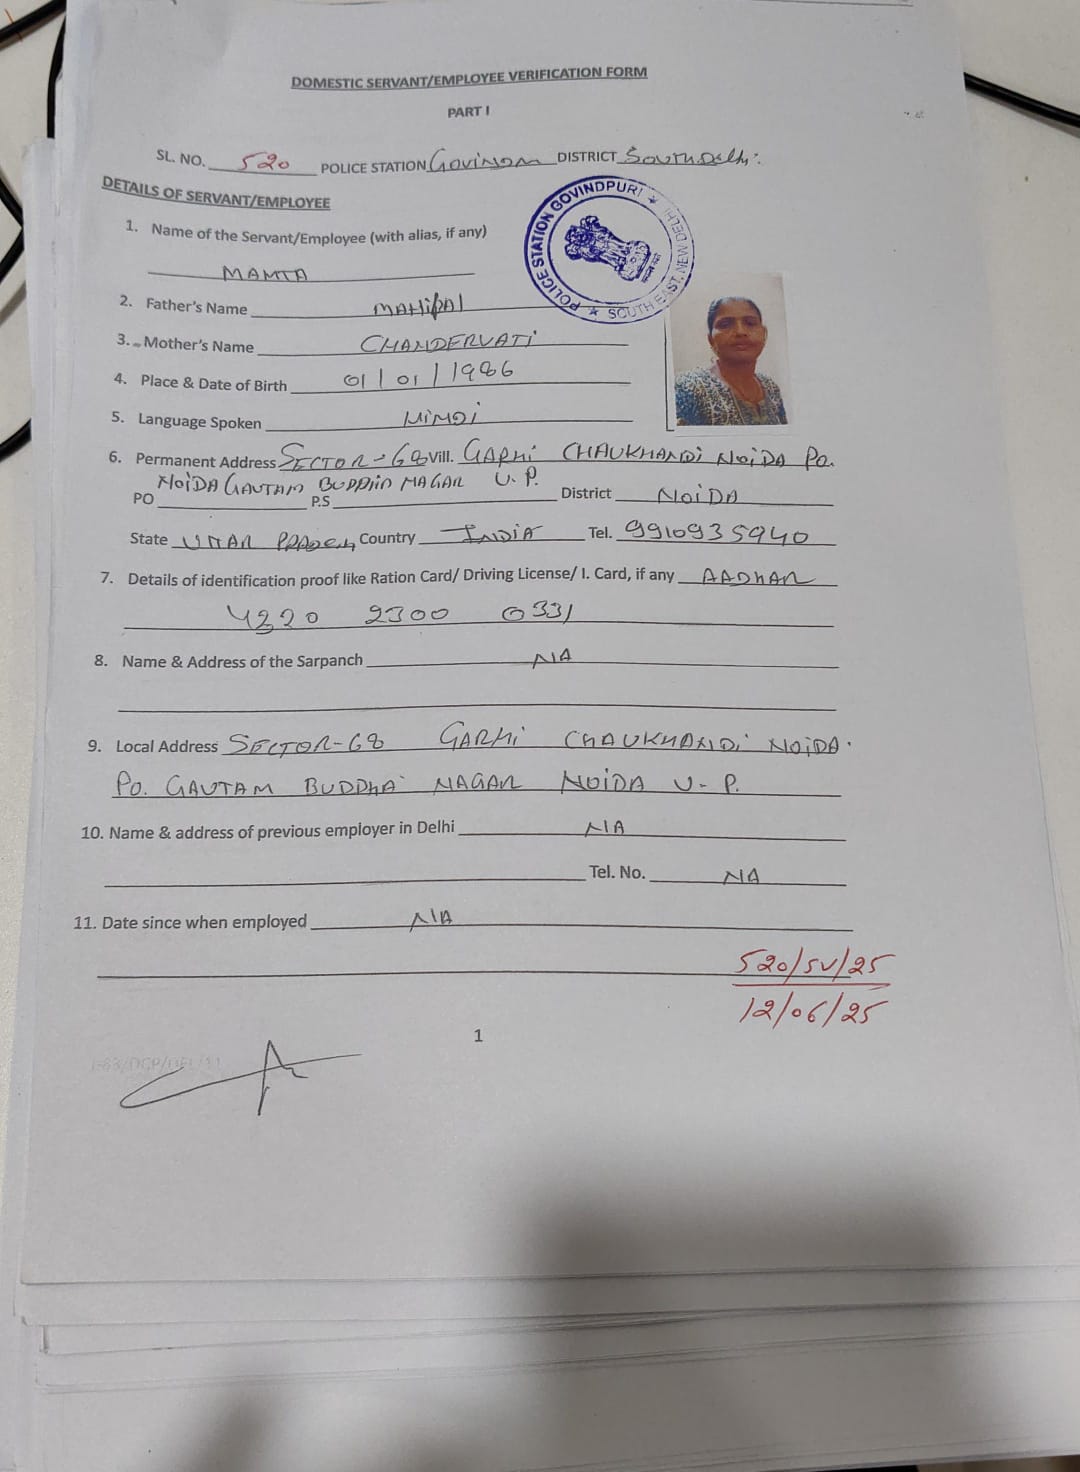 DOMESTIC SERVANT/EMPLOYEE VERIFICATION FORM
PART I
SL. NO. 520 POLICE STATION DISTRICT South Delhi
DETAILS OF SERVANT/EMPLOYEE
POLICE STATION GOVINDPURI ★ SOUTH EAST, NEW DELHI ★
1. Name of the Servant/Employee (with alias, if any)
MAMTA
2. Father's Name MAHiPAl
3. Mother's Name CHANDERVATi
4. Place & Date of Birth 01/01/1986
5. Language Spoken HiNDi
6. Permanent Address SECTOR-68 Vill. GARHi CHAUKHANDi NOiDA Po.
NOiDA GAUTAM BUDDHA NAGAR U.P.
PO P.S District NOiDA
State UTTAR PRADESH Country INDiA Tel. 9910935940
7. Details of identification proof like Ration Card/ Driving License/ I. Card, if any AADHAR
4220 2300 0331
8. Name & Address of the Sarpanch NA
9. Local Address SECTOR-68 GARHi CHAUKHANDi NOiDA.
Po. GAUTAM BUDDHA NAGAR NOiDA U-P.
10. Name & address of previous employer in Delhi NA
Tel. No. NA
11. Date since when employed NA
520/SV/25
12/06/25
1